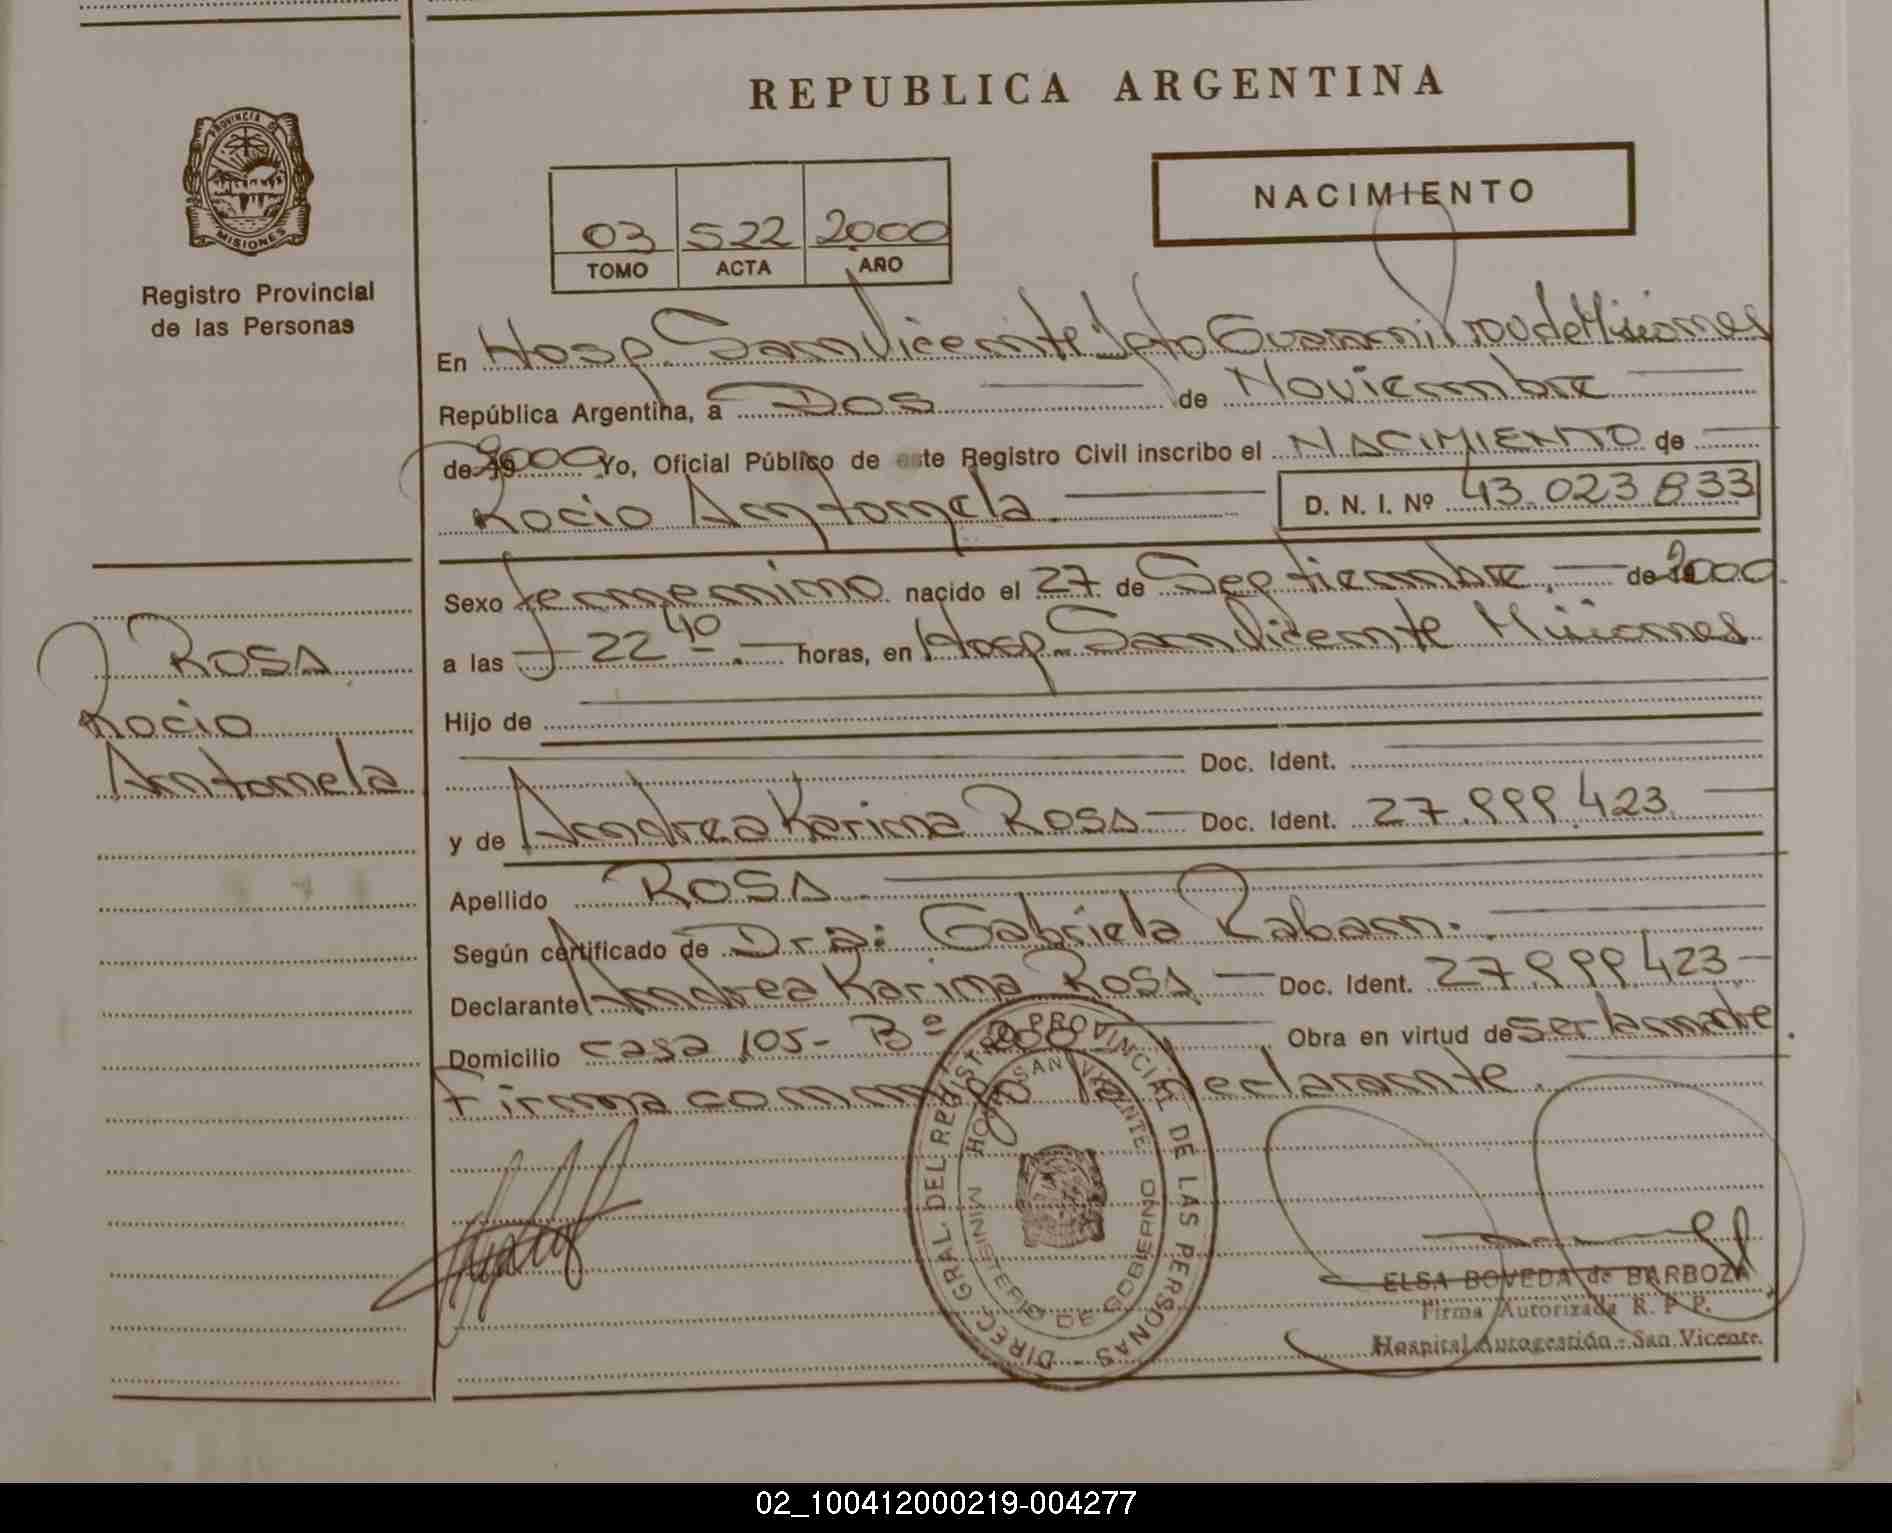 REPUBLICA ARGENTINA
PROVINCIA DE
MISIONES
Registro Provincial
de las Personas
NACIMIENTO
03 522 2000
TOMO ACTA AÑO
En Hosp. San Vicente Dpto Guarani Prov de Misiones
República Argentina, a Dos de Noviembre
de 2000 Yo, Oficial Público de este Registro Civil inscribo el NACIMIENTO de
Rocio Antonela. D. N. I. Nº 43.023.833
Sexo femenino nacido el 27 de Septiembre, de 2000
a las 22 40. horas, en Hosp. San Vicente Misiones
Hijo de
Doc. Ident.
y de Andrea Karina ROSA Doc. Ident. 27.999.423
Apellido ROSA
Según certificado de Dra: Gabriela Raban.
Declarante Andrea Karina ROSA Doc. Ident. 27.999.423
Domicilio casa 105- Bº 200 Obra en virtud de ser la madre.
Firma conmigo la declarante.
ROSA
Rocio
Antonela
DIREC. GRAL DEL REGISTRO PROVINCIAL DE LAS PERSONAS
HOSP. SAN VICENTE
MINISTERIO DE GOBIERNO
ELSA BOVEDA de BARBOZA
Firma Autorizada R. P. P.
Hospital Autogestión - San Vicente.
02_100412000219-004277